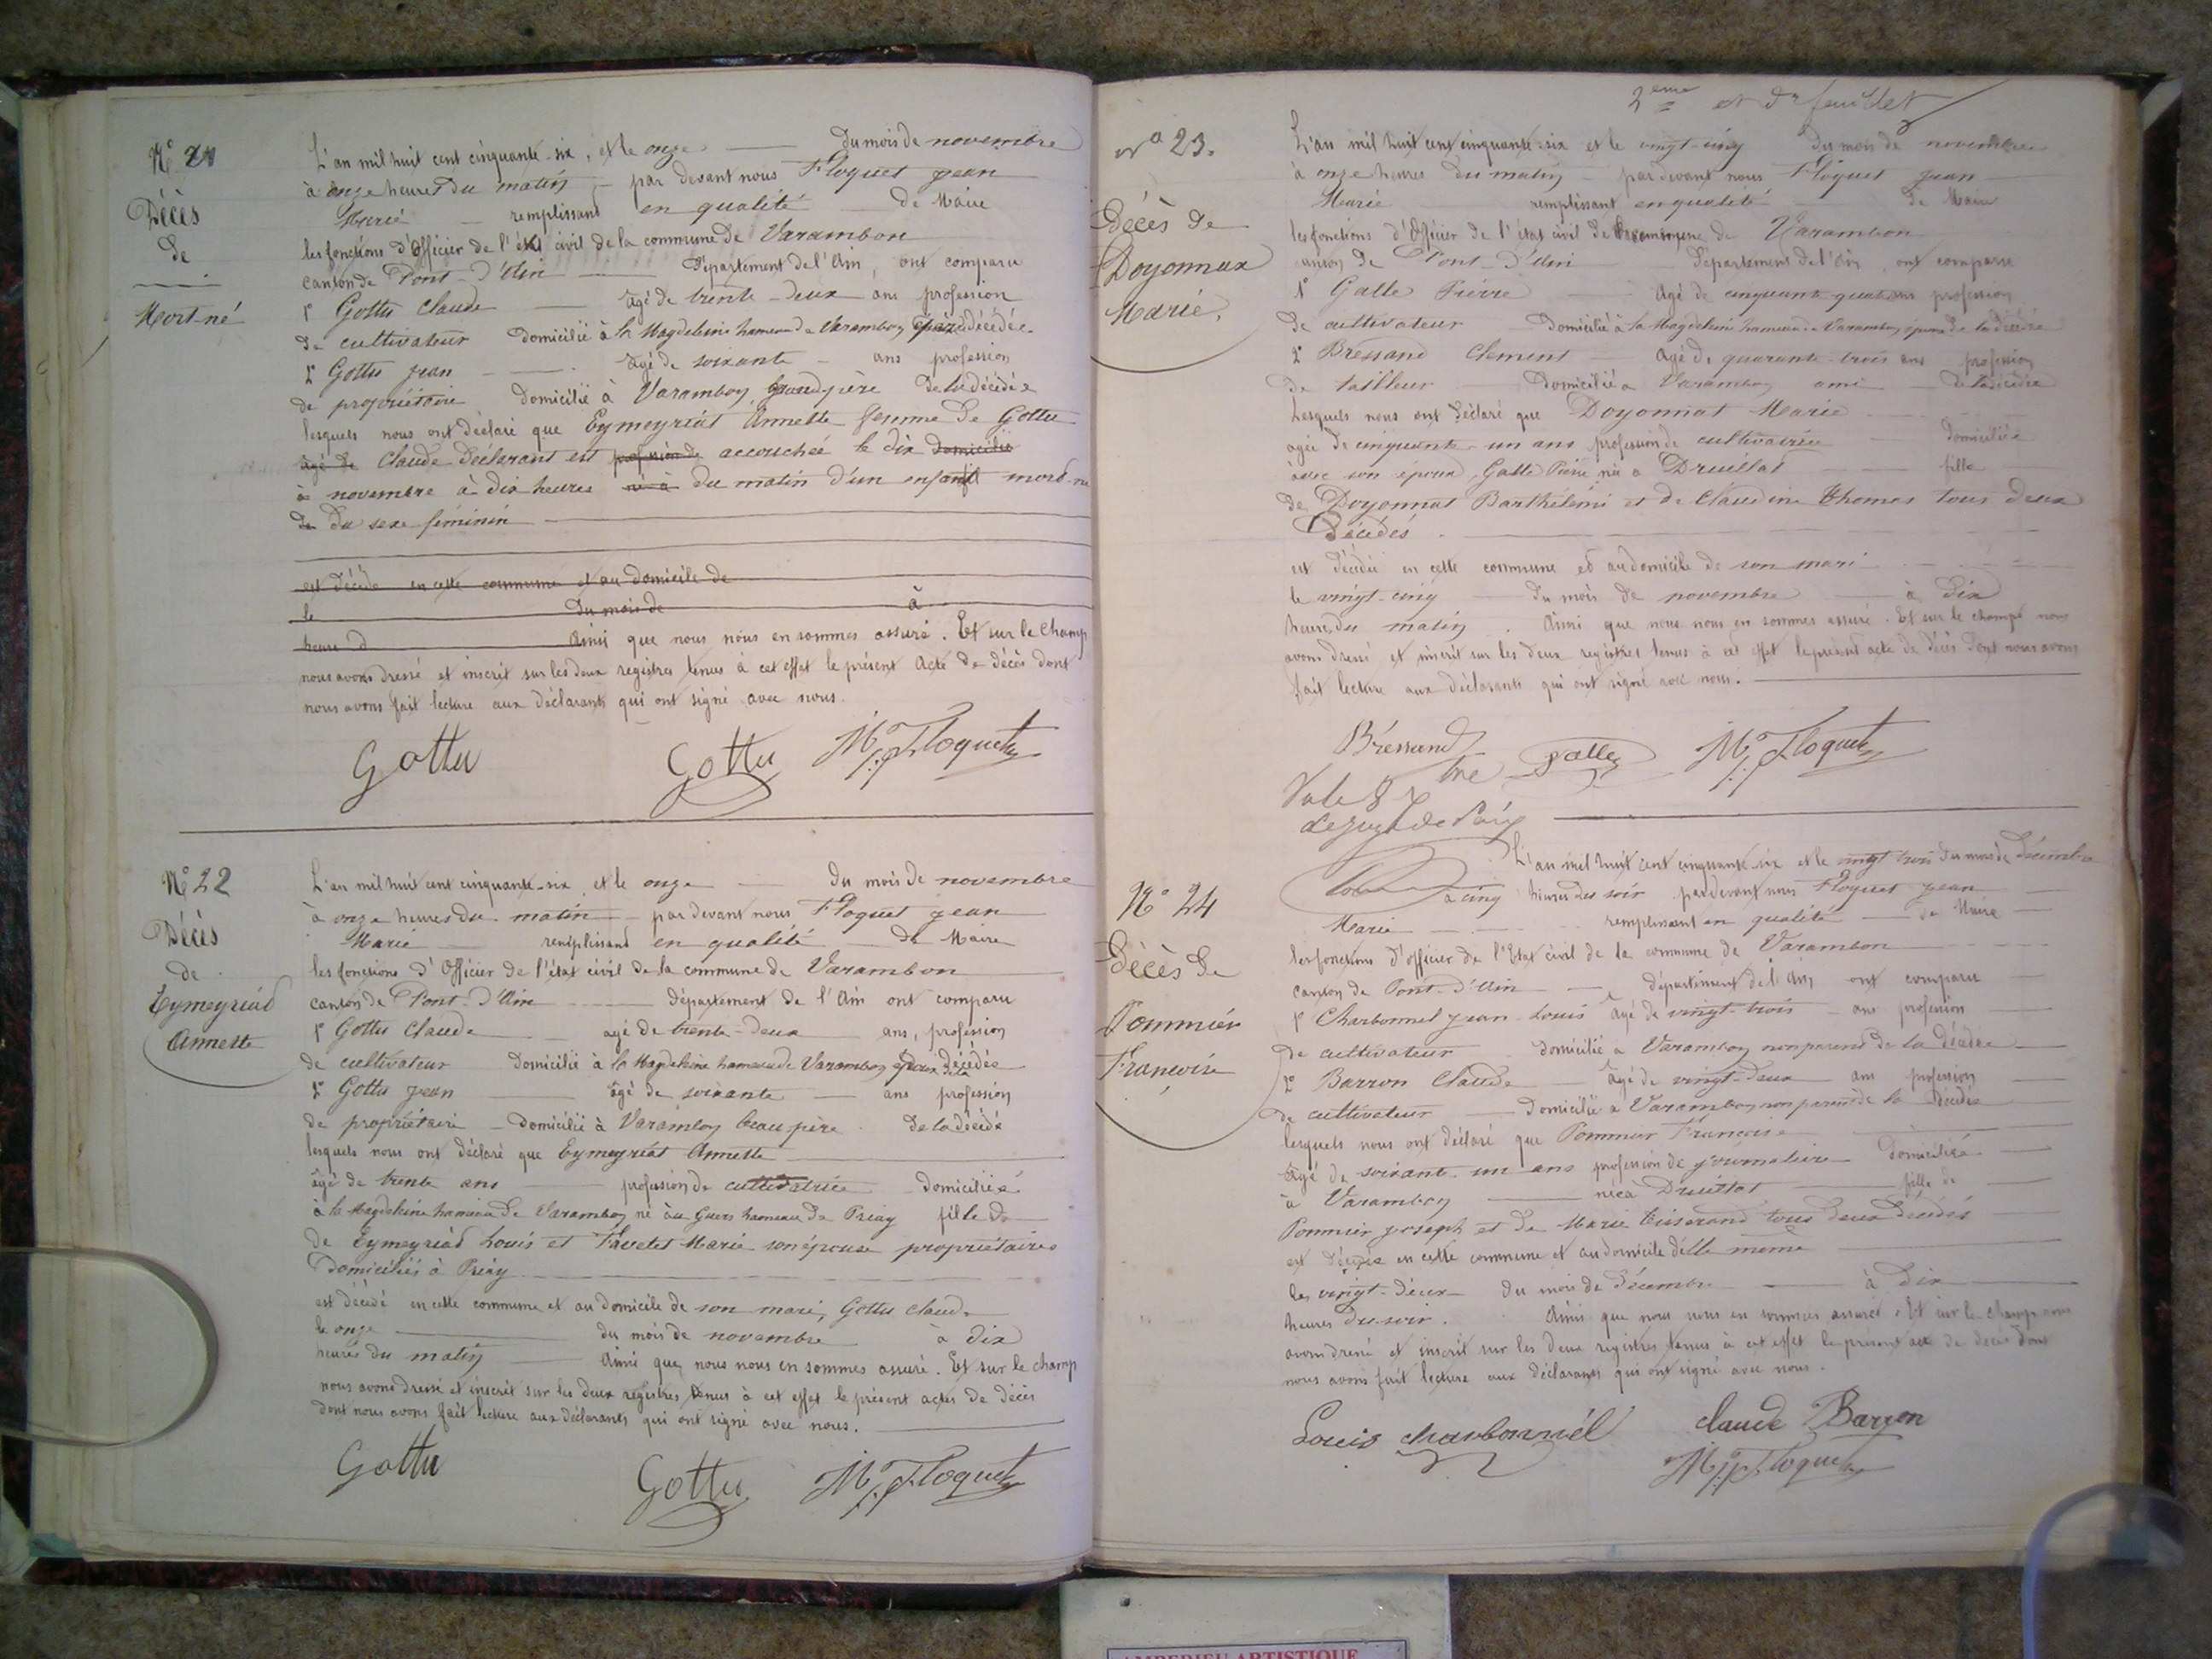 N° 21
Décès
de
Mort-né
L'an mil huit cent cinquante-six, et le onze du mois de novembre
à onze heures du matin par devant nous Floquet Jean
Marie remplissant en qualité de Maire
les fonctions d'Officier de l'état civil de la commune de Varambon
canton de Pont-d'Ain Département de l'Ain, ont comparu
1° Gottu Claude âgé de trente-deux ans profession
de cultivateur Domicilié à la Magdeleine hameau de Varambon décédée
2° Gottu Jean âgé de soixante ans profession
de propriétaire domicilié à Varambon, Grand-père de la décédée
lesquels nous ont déclaré que Eymeyriat Annette femme de Gottu
âgé de Claude déclarant est profession de accouchée le dix domicilié
à novembre à dix heures né à du matin d'un enfant mort-né
de Du sexe féminin
est décédé en cette commune et au domicile de
le du mois de à
heure d Ainsi que nous nous en sommes assuré. Et sur le champ
nous avons dressé et inscrit sur les deux registres tenus à cet effet le présent Acte de décès dont
nous avons fait lecture aux déclarants qui ont signé avec nous.
Gottu Gottu M. Floquet
N° 22
Décès
de
Eymeyriat
Annette
L'an mil huit cent cinquante-six, et le onze du mois de novembre
à onze heures du matin par devant nous Floquet Jean
Marie remplissant en qualité de Maire
les fonctions d'Officier de l'état civil de la commune de Varambon
canton de Pont-d'Ain département de l'Ain ont comparu
1° Gottu Claude âgé de trente-deux ans, profession
de cultivateur domicilié à la Magdeleine hameau de Varambon époux de la décédée
2° Gottu Jean âgé de soixante ans profession
de propriétaire domicilié à Varambon beau père de la décédé
lesquels nous ont déclaré que Eymeyriat Annette
âgé de trente ans profession de cultivatrice domiciliée
à la Magdeleine hameau de Varambon né au Guers hameau de Priay fille de
de Eymeyriat Louis et Pavetet Marie son épouse propriétaires
Domiciliés à Priay
est décédé en cette commune et au domicile de son mari, Gottu Claude
le onze du mois de novembre à dix
heures du matin Ainsi que nous nous en sommes assuré. Et sur le champ
nous avons dressé et inscrit sur les deux registres tenus à cet effet le présent actes de décès
dont nous avons fait lecture aux déclarants qui ont signé avec nous.
Gottu Gottu M. Floquet
2eme et dr feuillet
N° 23.
Décès de
Doyonnax
Marie.
L'an mil huit cent cinquante-six et le vingt-cinq du mois de novembre
à onze heures du matin par devant nous Floquet Jean
Marie remplissant en qualité de Maire
les fonctions d'Officier de l'état civil de la commune de Varambon
canton de Pont-d'Ain Département de l'Ain, ont comparu
1° Galle Pierre âgé de cinquante quatre ans profession
de cultivateur Domicilié à la Magdeleine hameau de Varambon époux de la décédée
2° Bressand Clement âgé de quarante-trois ans profession
de tailleur Domicilié à Varambon ami de la décédée
Lesquels nous ont déclaré que Doyonnat Marie
agée de cinquante-un ans profession de cultivatrice domiciliée
avec son epoux Galle Pierre née a Druillat fille
de Doyonnat Barthélemi et de Claudine Thomas tous deux
Décédés
est décédée en cette commune et au domicile de son mari
le vingt-cinq du mois de novembre à dix
heures du matin. Ainsi que nous nous en sommes assuré. Et sur le champ nous
avons dressé et inscrit sur les deux registres tenus à cet effet le présent acte de décès dont nous avons
fait lecture aux déclarants qui ont signé avec nous.
Bressand Galle M. Floquet
Le Juge de Paix
N° 24
Décès de
Pommier
Francoise
L'an mil huit cent cinquante-six et le vingt trois du mois de décembre
à cinq heures du soir pardevant nous Floquet Jean
Marie remplissant en qualité de Maire
les fonctions d'officier de l'Etat civil de la commune de Varambon
canton de Pont-d'Ain département de l'Ain ont comparu
1° Charbonnel Jean-Louis âgé de vingt-trois ans profession
de cultivateur domicilié a Varambon non parent de la décédée
2° Barron Claude âgé de vingt-deux ans profession
de cultivateur domicilié a Varambon non parent de la décédée
lesquels nous ont déclaré que Pommier Francoise
agé de soixante-un ans profession de journalière domiciliée
à Varambon née à Druillat fille de
Pommier Joseph et de Marie Tisserand tous deux décédés
est décédée en cette commune et au domicile d'elle même
les vingt-deux du mois de décembre à dix
heures du soir. Ainsi que nous nous en sommes assuré. Et sur le champ nous
avons dressé et inscrit sur les deux registres tenus à cet effet le présent acte de décès dont
nous avons fait lecture aux déclarants qui ont signé avec nous.
Louis charbonnel claude Barron
M. Floquet
AMBERIEU ARTISTIQUE